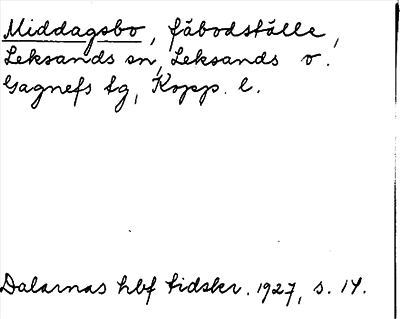 Middagsbo, fäbodställe,
Leksands sn, Leksands o.
Gagnefs tg, Kopp. l.
Dalarnas hbf tidskr. 1927, s. 14.